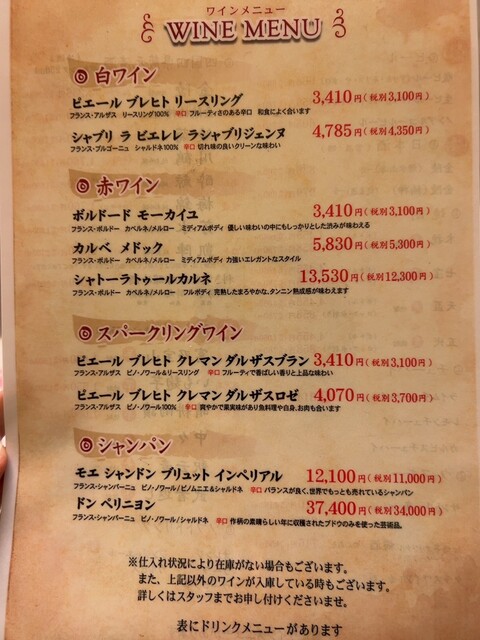 ワインメニュー
WINE MENU
白ワイン
ピエール ブレヒト リースリング 3,410円(税別3,100円)
フランス・アルザス リースリング100% 辛口 フルーティさのある辛口 和食によく合います
シャブリ ラ ピエレレ ラシャブリジェンヌ 4,785円(税別4,350円)
フランス・ブルゴーニュ シャルドネ100% 辛口 切れ味の良いクリーンな味わい
赤ワイン
ボルドード モーカイユ 3,410円(税別3,100円)
フランス・ボルドー カベルネ/メルロー ミディアムボディ 優しい味わいの中にもしっかりとした渋みが味わえる
カルベ メドック 5,830円(税別5,300円)
フランス・ボルドー カベルネ/メルロー ミディアムボディ 力強いエレガントなスタイル
シャトーラトゥールカルネ 13,530円(税別12,300円)
フランス・ボルドー カベルネ/メルロー フルボディ 完熟したまろやかな、タンニン熟成感が味わえます
スパークリングワイン
ピエール ブレヒト クレマン ダルザスブラン 3,410円(税別3,100円)
フランス・アルザス ピノ・ノワール&リースリング 辛口 フルーティで香ばしい香りと上品な味わい
ピエール ブレヒト クレマン ダルザスロゼ 4,070円(税別3,700円)
フランス・アルザス ピノ・ノワール100% 辛口 爽やかで果実味があり魚料理や白身、お肉も合います
シャンパン
モエ シャンドン ブリュット インペリアル 12,100円(税別11,000円)
フランス・シャンパーニュ ピノ・ノワール/ピノムニエ&シャルドネ 辛口 バランスが良く、世界でもっとも売れているシャンパン
ドン ペリニヨン 37,400円(税別34,000円)
フランス・シャンパーニュ ピノ・ノワール/シャルドネ 辛口 作柄の素晴らしい年に収穫されたブドウのみを使った芸術品。
※仕入れ状況により在庫がない場合もございます。
また、上記以外のワインが入庫している時もございます。
詳しくはスタッフまでお申し付けくださいませ。
表にドリンクメニューがあります